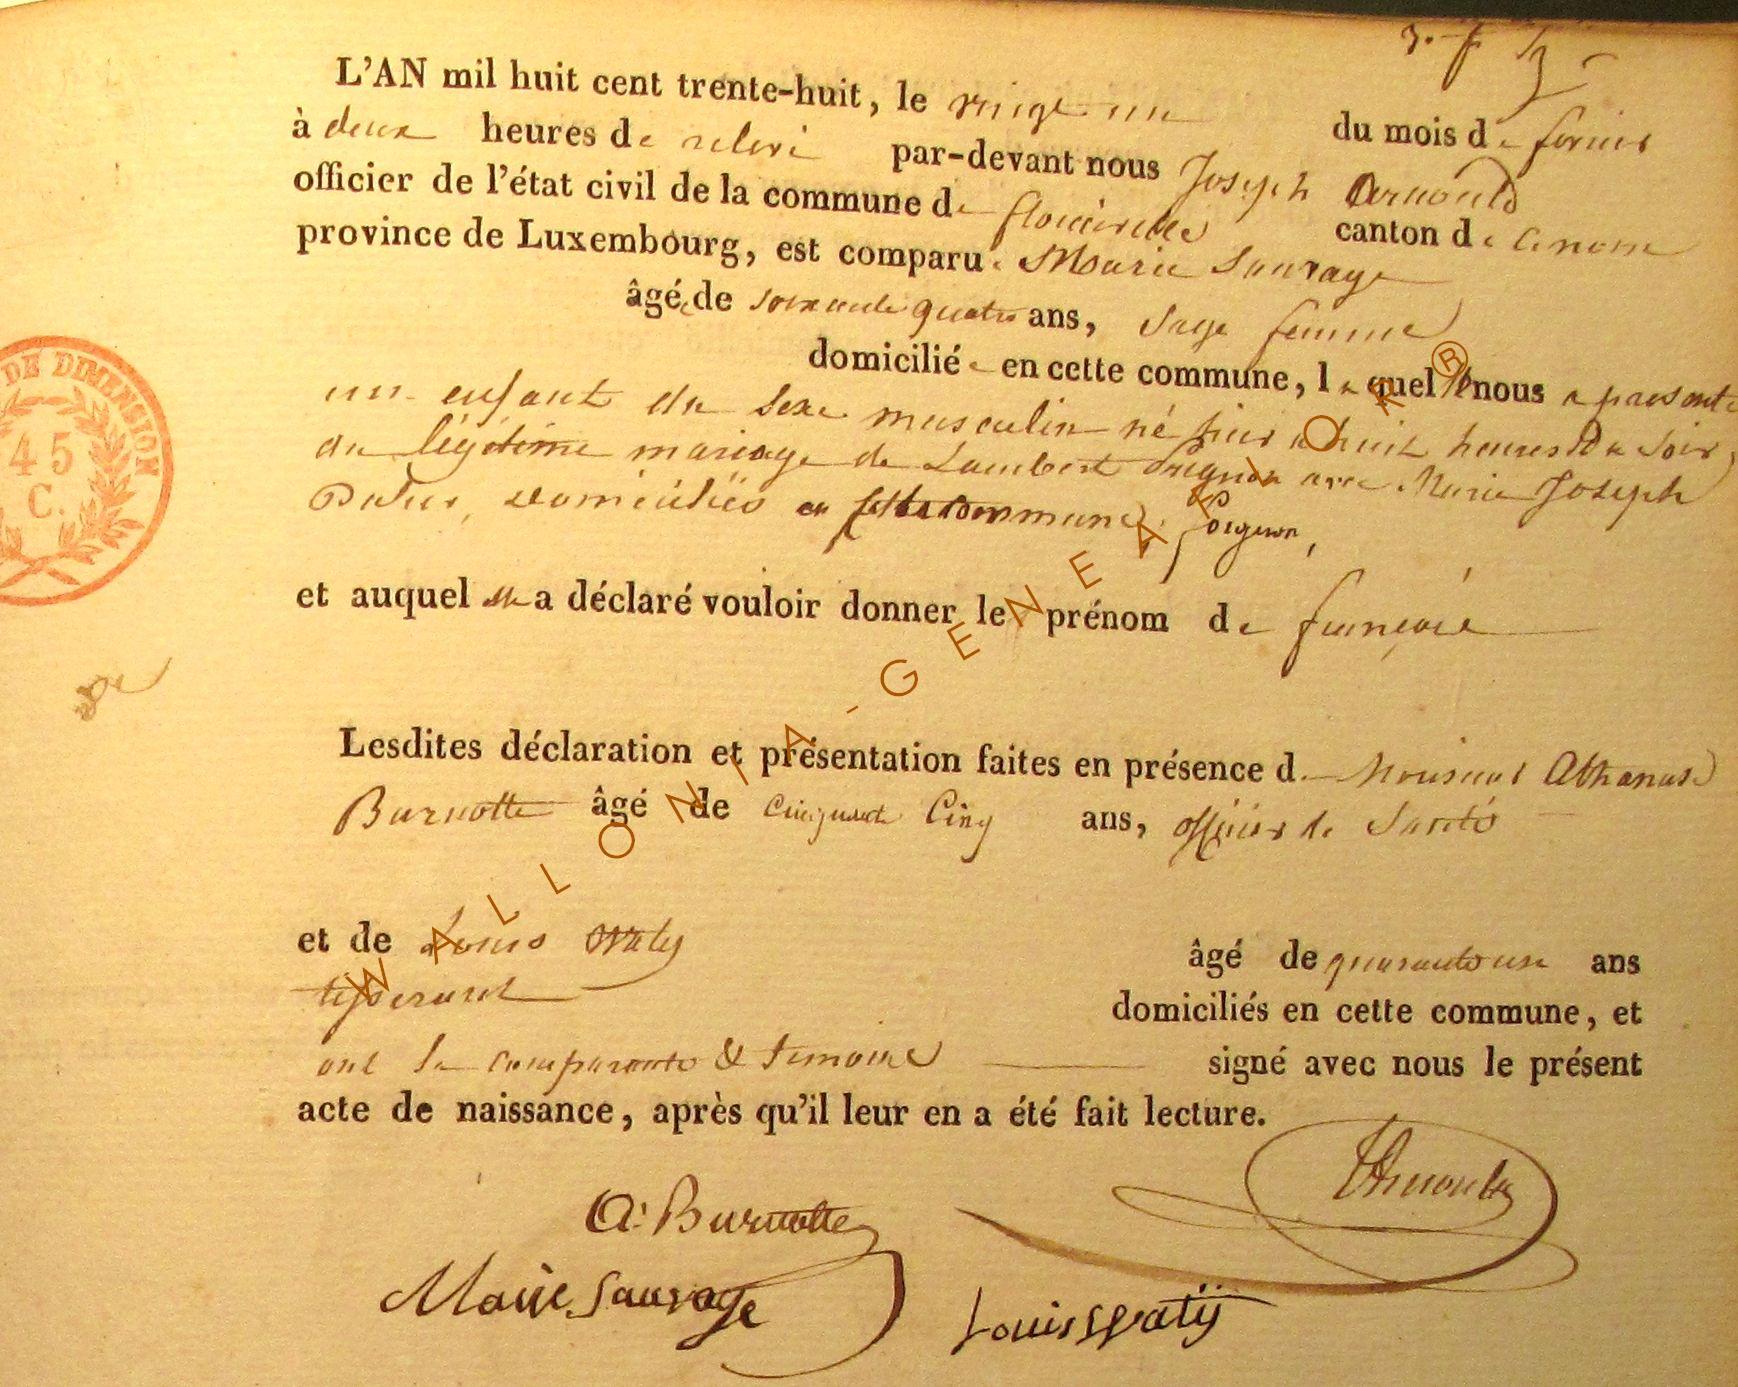 L'AN mil huit cent trente-huit, le vingt un du mois de
à deux heures de relevé par-devant nous Joseph Arnould
officier de l'état civil de la commune de florenville canton de ce nom
province de Luxembourg, est comparue Marie Sauvage
âgée de soixante quatre ans, sage femme
domiciliée en cette commune, laquelle nous a présenté
un enfant du sexe masculin né hier à huit heures du soir,
du légitime mariage de Lambert avec Marie Joseph
domiciliés en cette commune,
et auquel elle a déclaré vouloir donner le prénom de françois
Lesdites déclaration et présentation faites en présence de Monsieur Athanase
Burnotte âgé de cinquante Cinq ans, officier de Santé
et de Louis Watÿ âgé de ans
tisserand domiciliés en cette commune, et
ont la comparante & témoins signé avec nous le présent
acte de naissance, après qu'il leur en a été fait lecture.
A. Burnotte
Marie Sauvage
Louis Watÿ
DE DIMENSION
45
C.
WALLONIA-GENEALOR®